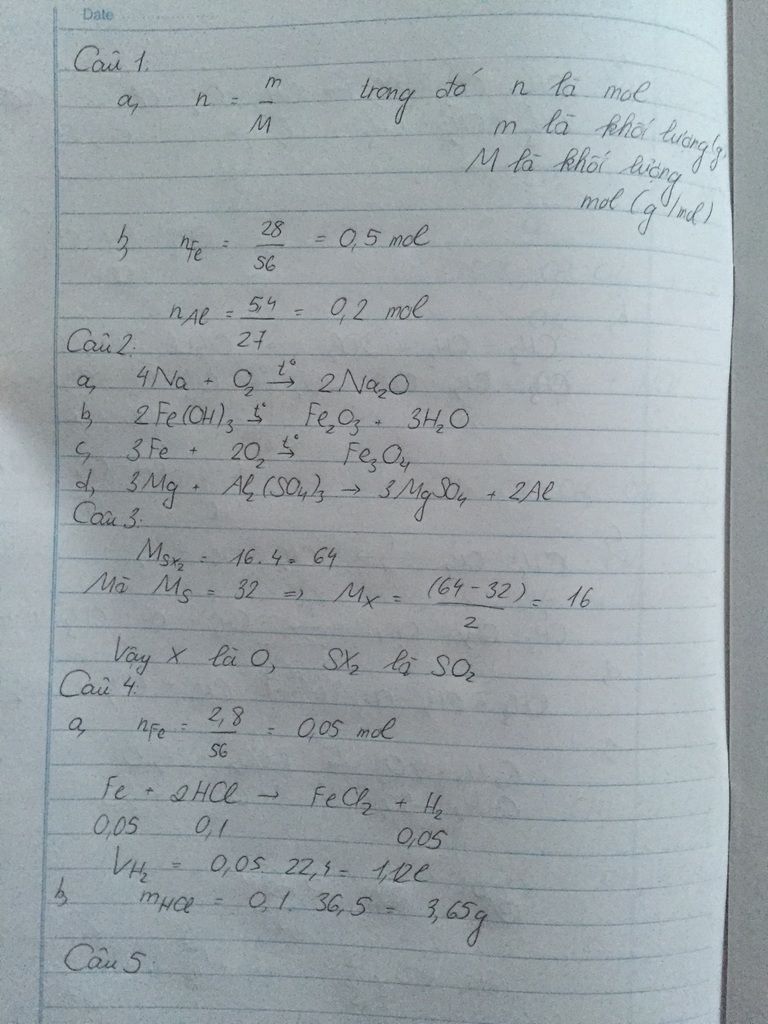 Date
Câu 1.
a, n = m/M trong đó n là mol
m là khối lượng (g)
M là khối lượng
mol (g/mol)
b, nFe = 28/56 = 0,5 mol
nAl = 5,4/27 = 0,2 mol
Câu 2.
a, 4Na + O₂ →(t°) 2Na₂O
b, 2Fe(OH)₃ →(t°) Fe₂O₃ + 3H₂O
c, 3Fe + 2O₂ →(t°) Fe₃O₄
d, 3Mg + Al₂(SO₄)₃ → 3MgSO₄ + 2Al
Câu 3:
MSX₂ = 16.4 = 64
Mà MS = 32 => MX = (64-32)/2 = 16
Vậy X là O, SX₂ là SO₂
Câu 4:
a, nFe = 2,8/56 = 0,05 mol
Fe + 2HCl → FeCl₂ + H₂
0,05 0,1 0,05
VH₂ = 0,05 . 22,4 = 1,12l
b, mHCl = 0,1 . 36,5 = 3,65g
Câu 5.